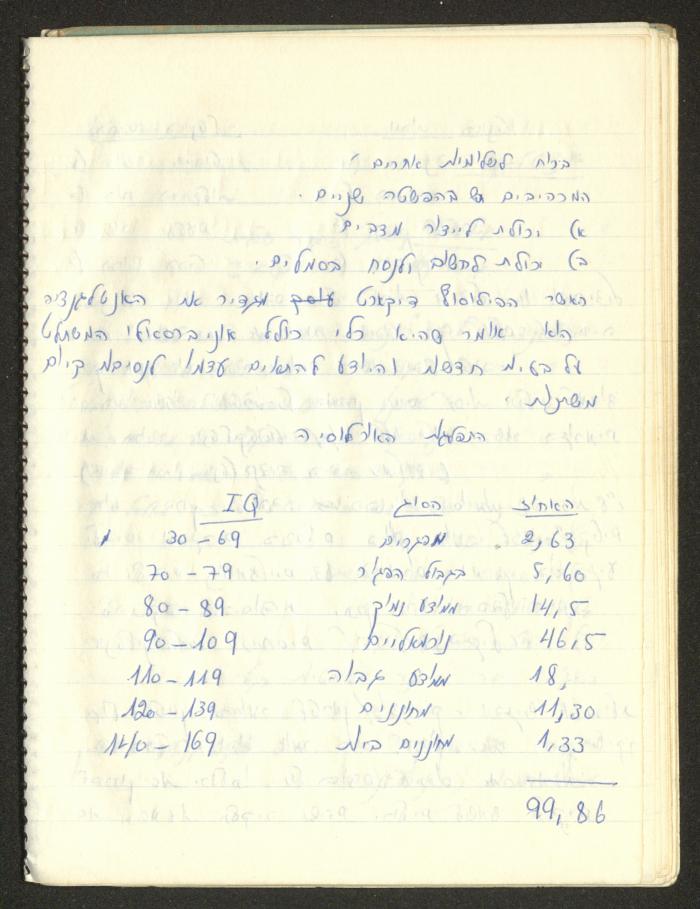 אחרים
המרכיבים יש בהפשטה שניים .
א) יכולת לייצור מצבים
ב) יכולת לחשוב ולנסח בסמלים .
כאשר הפילוסוף דיקארט מגדיר את האנטלגנציה
הוא אומר שהיא כלי כולל אוניברסאלי המשתלט
על בעיות חדשות והיודע להתאים עצמו לנסיבות קיום
משתנות
התפלגות האוכלוסיה
האחוז הסוג IQ
2,63 מפגרים 30-69
5,60 בגבול הפיגור 70-79
14,5 ממוצע נמוך 80-89
46,5 נורמאליים 90-109
18, ממוצע גבוה 110-119
11,30 מחוננים 120-139
1,33 מחוננים ביותר 140-169
99,86